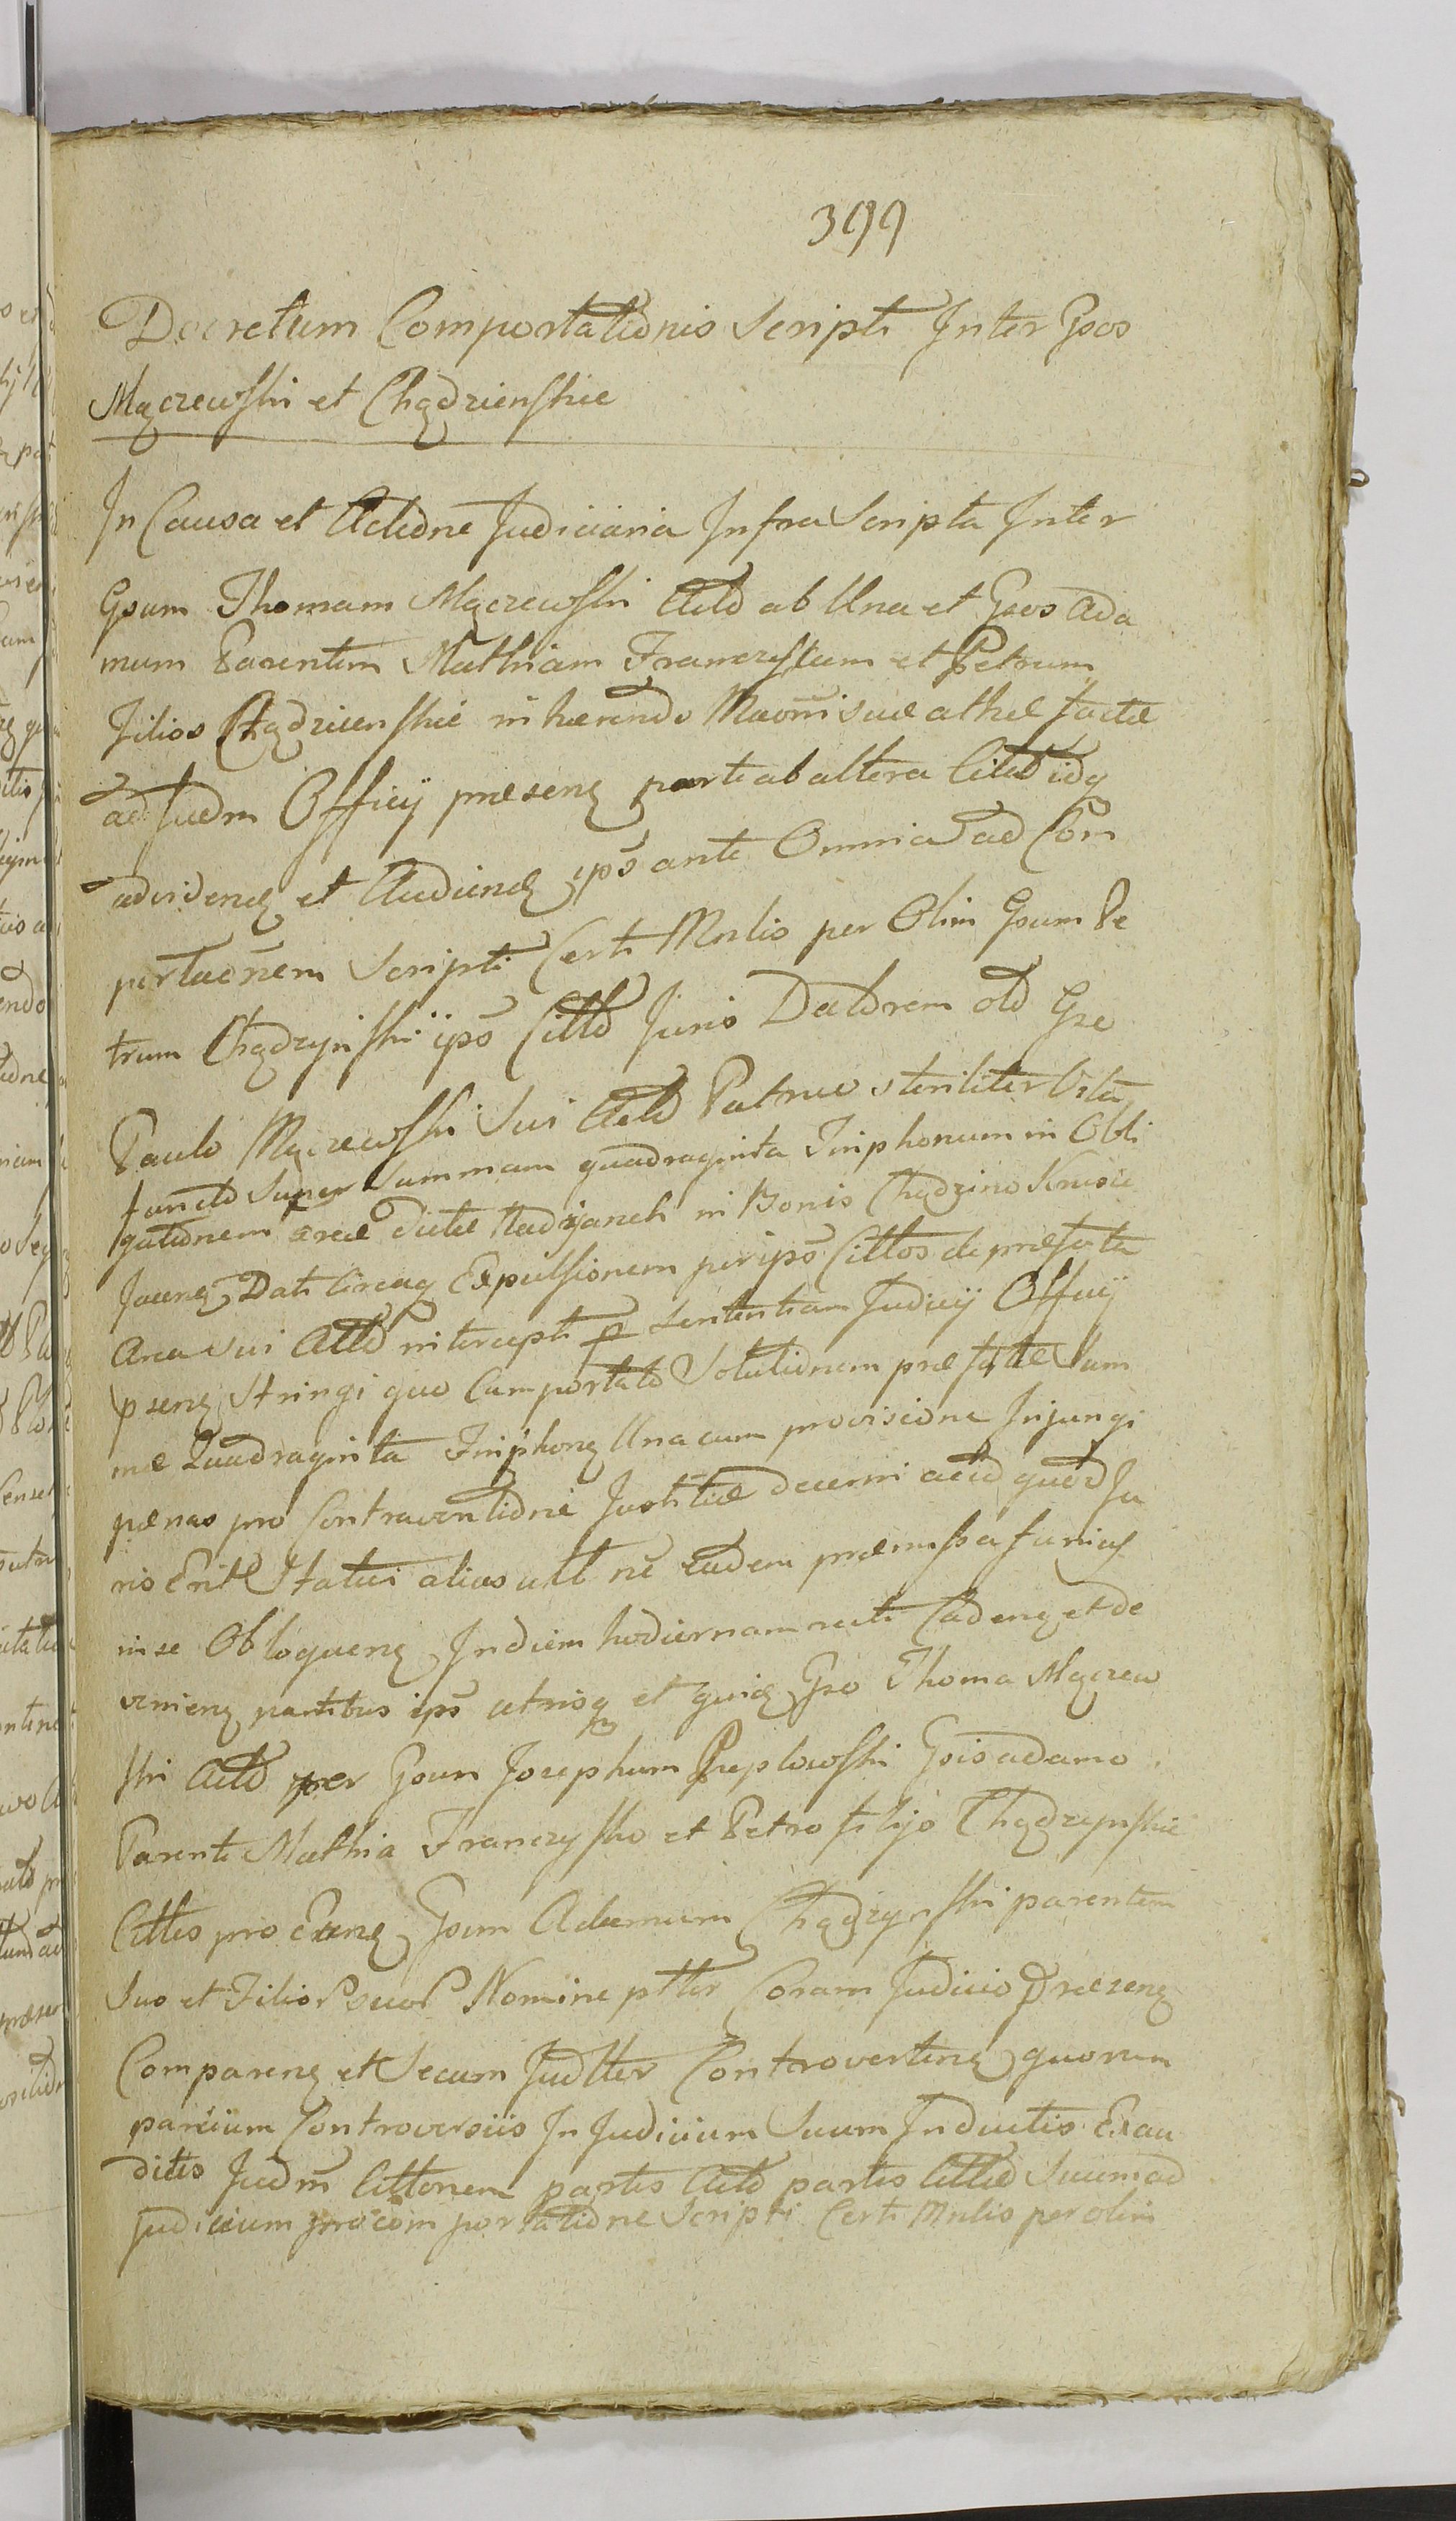 399
Decretum Comportationis Scripti Inter Gsos
Mączewski et Chądzienskie
In Causa et Actione Judiciaria Infra Scripta Inter
Gsum Thomam Mączewski Acto ab Una et Gsos Ada
mum Parentem Mathiam Francziscum et Petrum
Filios Chądzienskie in haerendo sue athae factae
ad Judm Officij praesenq parte ab altera Citt idq
advidenq et Audienq ips ante Omnia ad Com
portacnem Scripti Certi Mnlis per Olim Gsum Pe
trum Chądzynski ips Citto Juris Datorem olo Gse
Paulo Mączewski Sui Acto Patruo steriliter Vita
functo Super Summam quadraginta Tinphonum in Obli
gationem areae dictae in Bonis Chądzino
Jacenq Dati Circaq Expulsionem per ips Cittos de praefata
Area sui Acto intercepti p sententiam Judicij Officij
psenq Stringi quo Comportato Solutionem praefatae Sum
mae Quadraginta Tinphonq Una cum provisione Injungi
paenas pro Contraventione Justitiae decerni acid quod Ju
ris Erit Statui alias utt ne eadem praemissa
in se Obloquenq In diem hodiernam recte Cadenq et de
venienq partibus ips utrisq et quidq Gso Thoma Mączew
ski Acto per Gsum Josephum Gsis adamo
Parente Mathia Franczysko et Petro filijs Chądzynskie
Cittis pro Eenq Gsum Adamum Chądzynski parentem
Suo et Filior suor Nomine ptter Coram Judicio Praesenq
Comparenq et Secum Judtter Controvertenq quorum
parcium Controversiis In Judicium Suum Inductis Exau
ditis Judm Cittonem partis Acto partis Citto Suum ad
judicium pro comportatione Scripti Certi Mnlis per olim